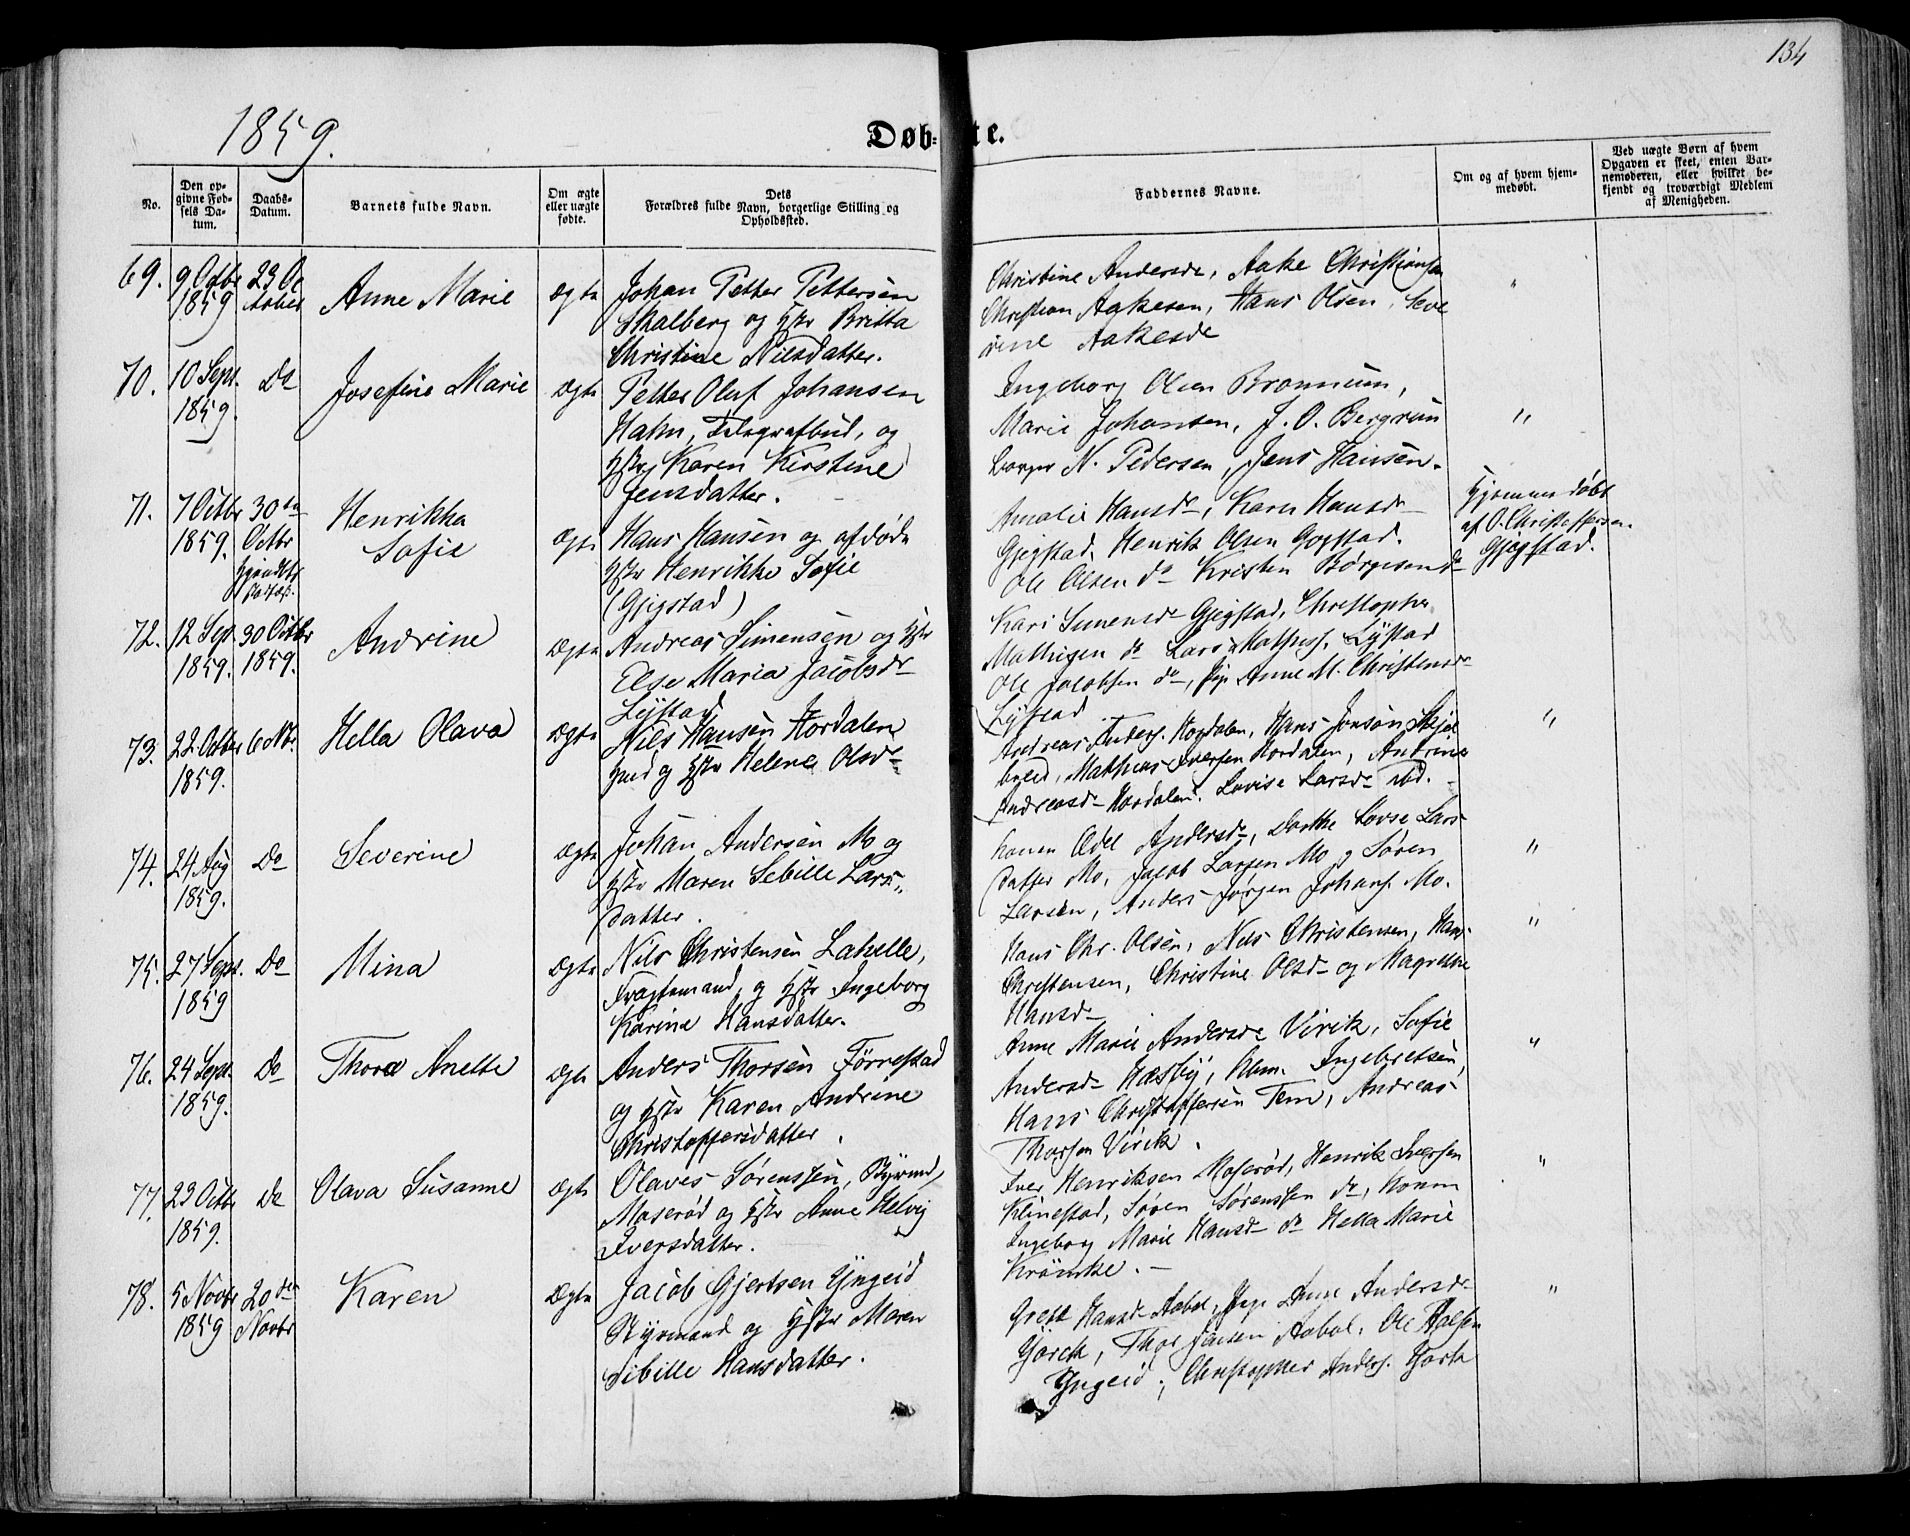 134
1859.
Døbte.
No.
Den opgivne Fødsels Datum.
Daabs-Datum.
Barnets fulde Navn.
Om ægte eller uægte fødte.
Dets Forældres fulde Navn, borgerlige Stilling og Opholdssted.
Faddernes Navne.
Om og af hvem hjemmedøbt.
Ved uægte Børn af hvem Opgaven er skeet, enten Barnemoderen, eller hvilket bekjendt og troværdigt Medlem af Menigheden.
69. 9 Octbr 1859 23 October Anne Marie ægte
Johan Petter Pettersen
Skalberg og Hstr Britta
Christine Nilsdatter.
Christine Andersdr, Aake Christiansen
Christian Aakesen, Hans Olsen, Seve
rine Aakesdr
"
70. 10 Sept. 1859. Do Josefine Marie ægte
Petter Oluf Johansen
Hahn, Telegrafbud, og
Hstr Karen Kirstine
Jensdatter.
Ingeborg Olsen
Marie Johansen, J. O.
N. Pedersen, Jens Hansen.
"
71. 7 Octbr 1859. 30te Octbr Henrikka Sofie ægte
Hans Hansen og afdøde
Hstr Henrikke Sofie
(Gjigstad)
Amalie Hansdr, Karen Hansdr
Gjegstad, Henrik Olsen Gogstad.
Ole Olsen do Kristen Børgesen do
Hjemmedøbt
af O. Christoffersen
Gjegstad.
72. 12 Sep. 1859. 30 Octbr 1859. Andrine ægte
Andreas Simensen og Hstr
Else Maria Jacobsdr
Lystad
Kari Simensdr Gjegstad, Christopher
Mathisen do Lars Mathiss. Lystad
Ole Jacobsen do, Pige Anne M. Christensdr
Lystad
73. 22 Octbr 1859. 6 Nbr. Hella Olava ægte
Nils Hansen Hordalen
Hmd og Hstr Helene Olsdr
Andreas Anders. Hordalen, Hans Jonsøn
Mathias Iversen Hordalen, Andrine
Andreasdr Hordalen. Lovise Larsdr ibd.
"
74. 24 Aug 1859. Do Severine ægte
Johan Andersen Mo og
Hstr Maren Sebille Lars-
datter.
Konen Edel Andersdr, Dorthe Lovse Lars-
datter Mo, Jacob Larsen Mo, Søren
Larsen, Anders Jørgen Johans. Mo.
"
75. 27 Sept. 1859 Do Mina ægte
Nils Christensen Lahelle,
Fragtemand, og Hstr Ingeborg
Karine Hansdatter.
Hans Chr. Olsen, Nils Christensen, Hans
Christensen, Christine Olsdr og Magrethe
Hansdr
"
76. 24 Sept. 1859. Do Thora Anette ægte
Anders Thorsen Førrestad
og Hstr Karen Andrine
Christoffersdatter.
Anne Marie Andersdr Virik, Sofie
Andersdr Hæsby, Abm. Ingebretsen,
Hans Christoffersen Tem, Andreas
Thorsen Virik.
"
77. 23 Octbr 1859. Do Olava Susanne ægte
Olaves Sørenssen, Styrmd,
Moserød og Hstr Anne Helvig
Iversdatter.
Iver Henriksen Moserød, Henrik Iversen
Klinestad, Søren Sørenssen do, Konen
Ingeborg Marie Hansdr do Hella Marie
Krömke.
"
78. 5 Novbr 1859 20de Novbr Karen ægte
Jacob Gjertsen Yngeid
Styrmand og Hstr Maren
Sibille Hansdatter.
Grethe Hansdr Aabol, Pige Andersdr
Thor Jansen Aabol, Ole
Yngeid, Christopher Anders.
"